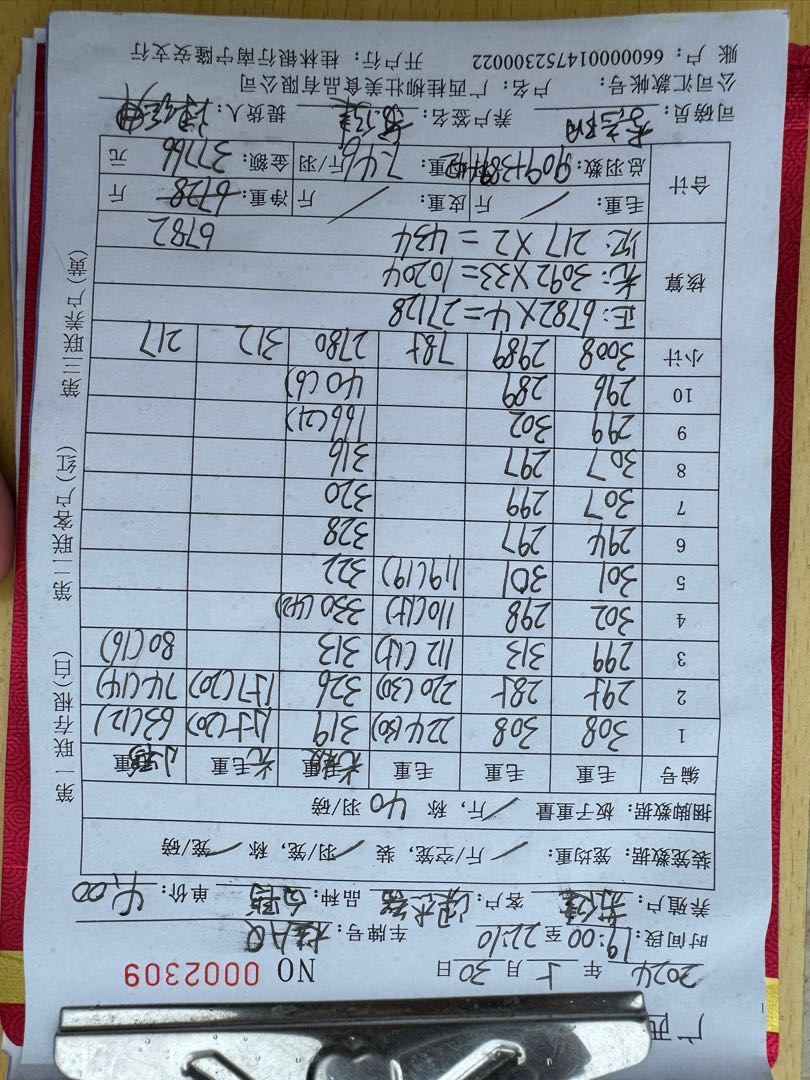 广西
NO 0002309
2024 年 5 月 30 日
时间段: 19:00 至 22:10 车牌号: 桂A
养殖户: 客户: 品种: 白鸭 单价: 4.00
装笼数据: 笼均重: 斤/空笼, 装 羽/笼, 称 笼/磅
捆脚数据: 板子重量 斤, 称 40 羽/磅
编号 毛重 毛重 毛重 重 光毛重 重
1 308 308 224(30) 319 155(20) 63(12)
2 295 285 220(30) 326 157(20) 74(14)
3 299 313 112(15) 313 80(16)
4 302 298 110(15) 330(42)
5 301 301 119(19) 322
6 294 297 328
7 307 299 320
8 307 297 316
9 299 302 166(21)
10 296 289 40(6)
小计 3008 2989 785 2780 312 217
核算
正: 6782×4=27128
光: 3092×33=10204
217×2=434 6782
合计
毛重: / 斤 皮重: / 斤 净重: 6728 斤
总羽数: 909+389+42 重: 7.46 斤/羽 金额: 37766 元
司磅员: 养户签名: 提货人:
公司汇款帐号: 户名: 广西桂柳壮美食品有限公司
账户: 660000014752300022 开户行: 桂林银行南宁隆安支行
第一联存根(白) 第二联客户(红) 第三联养户(黄)